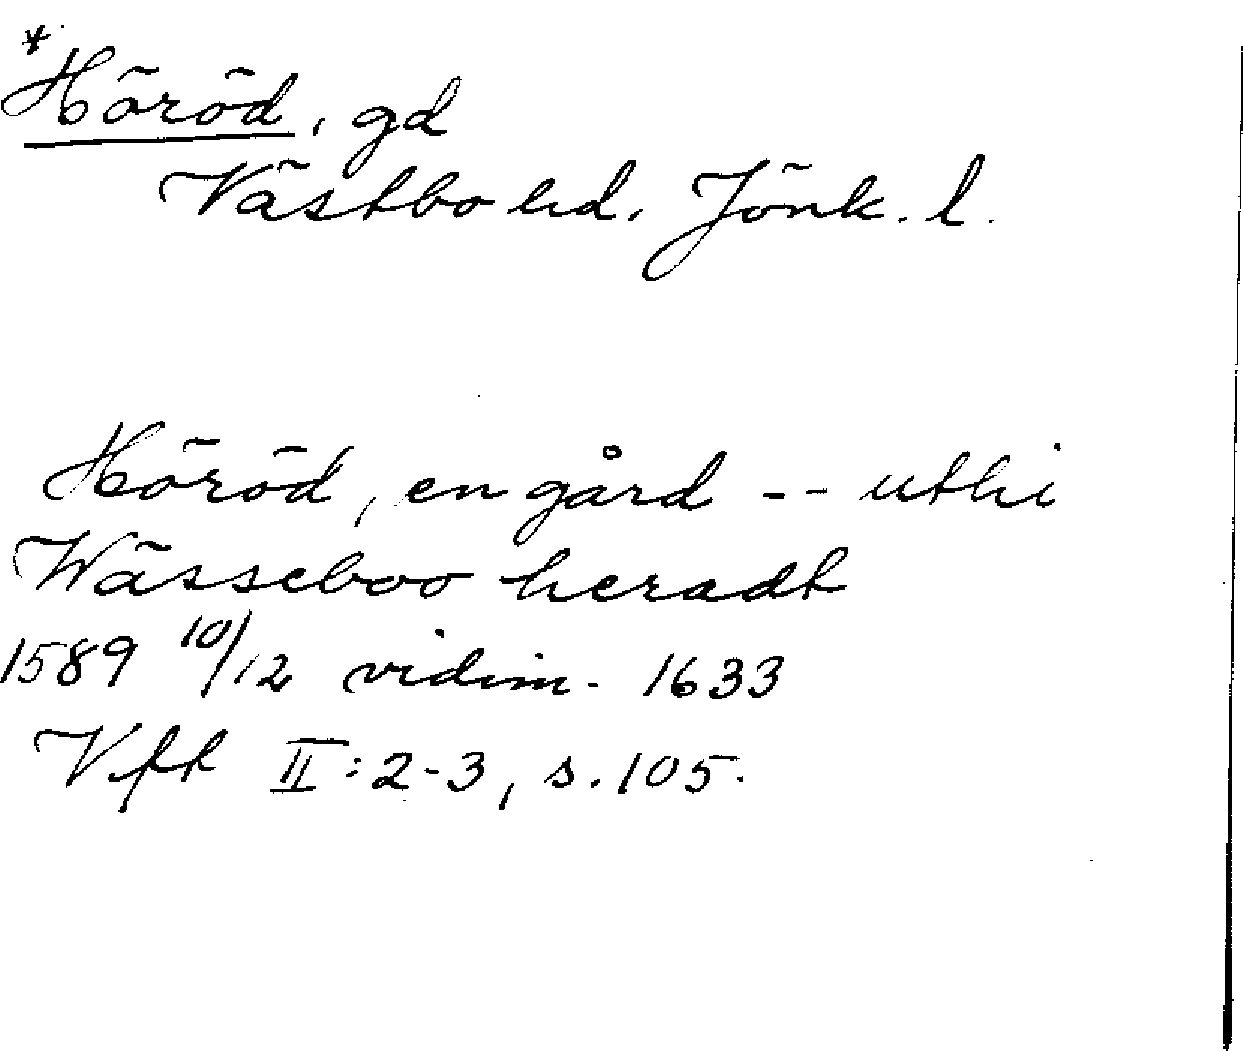 *Höröd, gd
Västbo hd. Jönk. l.
Höröd, en gård -- uthi
Wässeboo heradt
1589 10/12 vidim. 1633
Vfft II:2-3, s. 105.